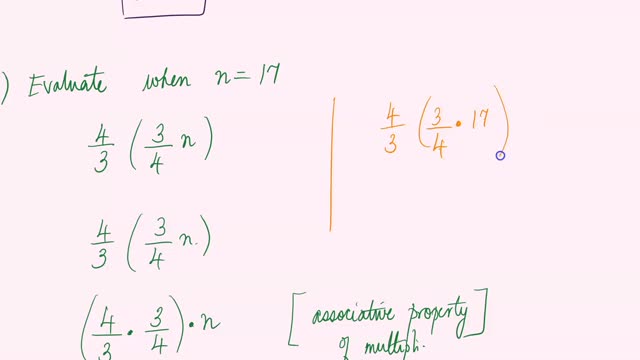 ) Evaluate when n = 17
4/3 (3/4 n)
4/3 (3/4 • 17)
4/3 (3/4 n.)
(4/3 • 3/4) • n [associative property]
of multipli.